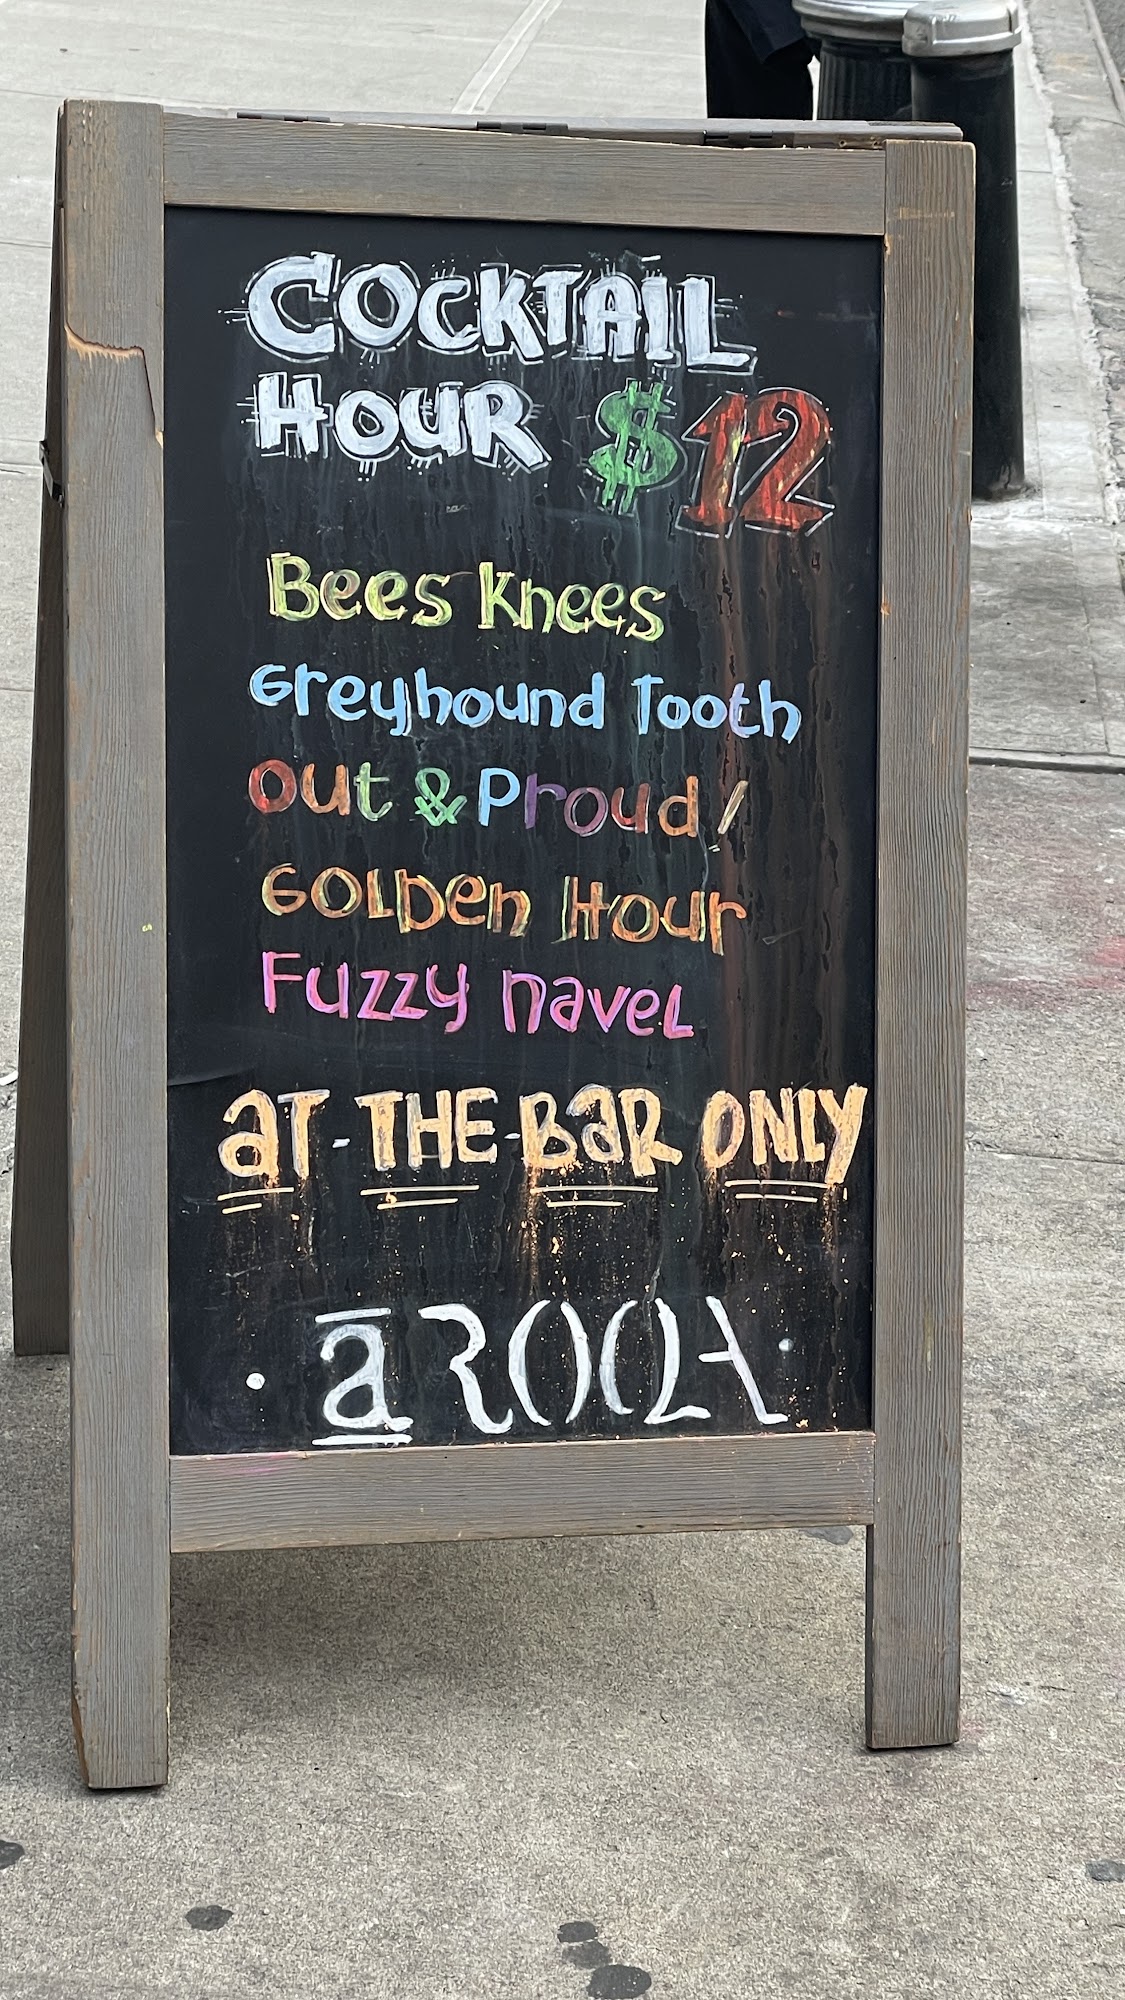 COCKTAIL
HOUR $12
Bees Knees
Greyhound Tooth
Out & Proud!
GOLDen Hour
Fuzzy naveL
aT-THE-BaR ONLY